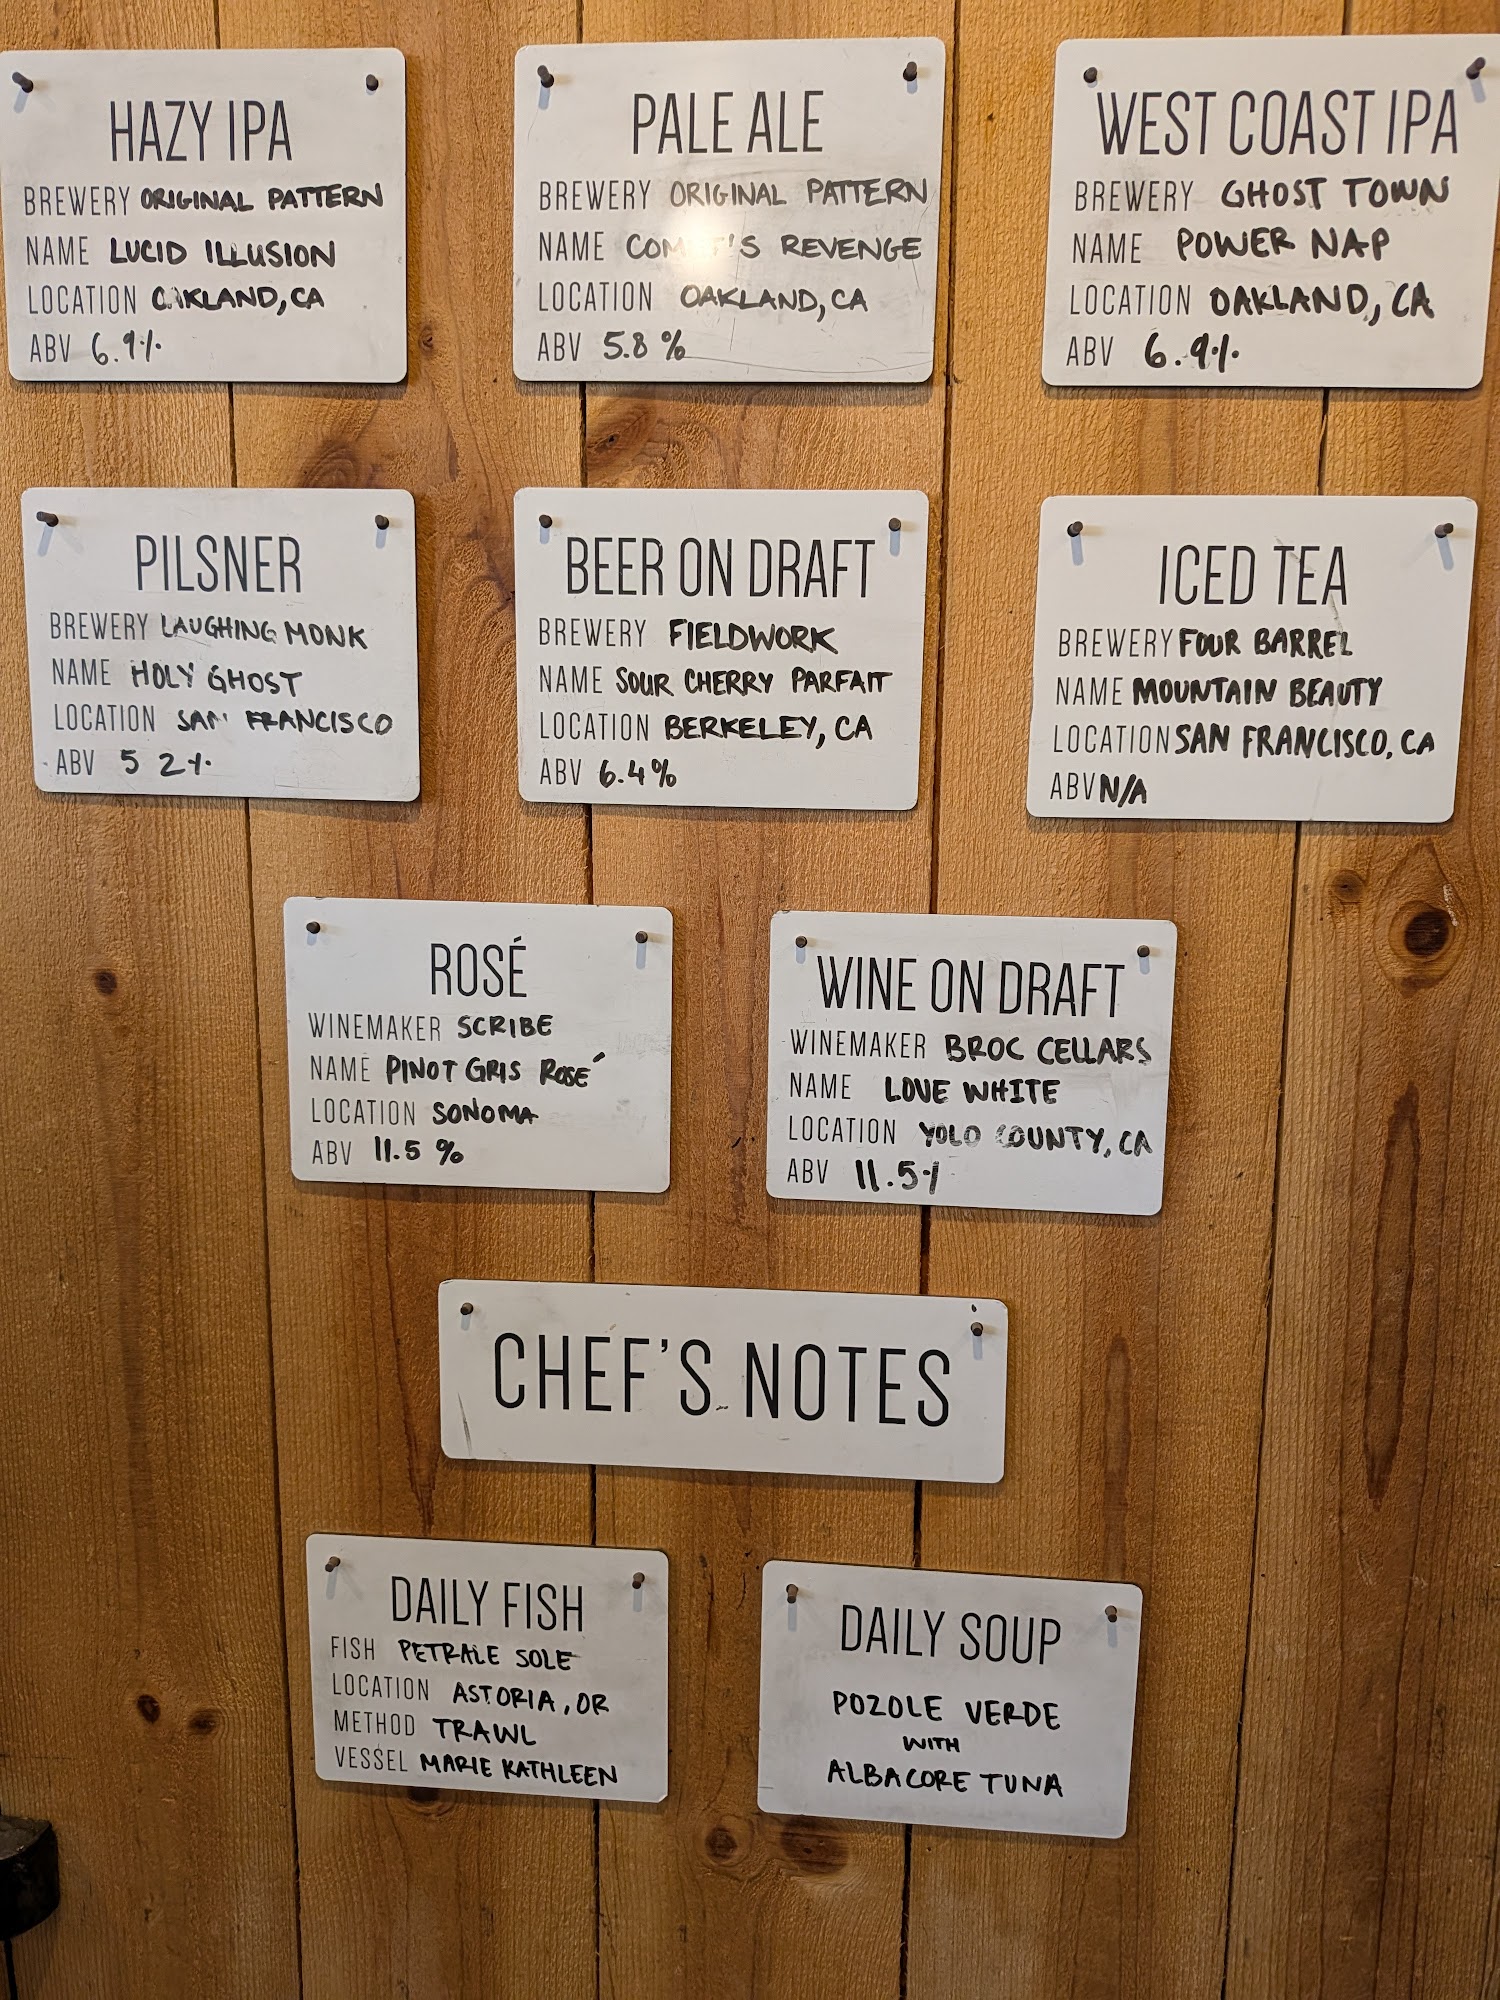 HAZY IPA
BREWERY ORIGINAL PATTERN
NAME LUCID ILLUSION
LOCATION OAKLAND, CA
ABV 6.9%
PALE ALE
BREWERY ORIGINAL PATTERN
NAME REVENGE
LOCATION OAKLAND, CA
ABV 5.8 %
WEST COAST IPA
BREWERY GHOST TOWN
NAME POWER NAP
LOCATION OAKLAND, CA
ABV 6.9%
PILSNER
BREWERY LAUGHING MONK
NAME HOLY GHOST
LOCATION SAN FRANCISCO
ABV 5 2%
BEER ON DRAFT
BREWERY FIELDWORK
NAME SOUR CHERRY PARFAIT
LOCATION BERKELEY, CA
ABV 6.4%
ICED TEA
BREWERY FOUR BARREL
NAME MOUNTAIN BEAUTY
LOCATION SAN FRANCISCO, CA
ABV N/A
ROSÉ
WINEMAKER SCRIBE
NAME PINOT GRIS ROSÉ
LOCATION SONOMA
ABV 11.5 %
WINE ON DRAFT
WINEMAKER BROC CELLARS
NAME LOVE WHITE
LOCATION YOLO COUNTY, CA
ABV 11.5%
CHEF'S NOTES
DAILY FISH
FISH PETRALE SOLE
LOCATION ASTORIA, OR
METHOD TRAWL
VESSEL MARIE KATHLEEN
DAILY SOUP
POZOLE VERDE
WITH
ALBACORE TUNA